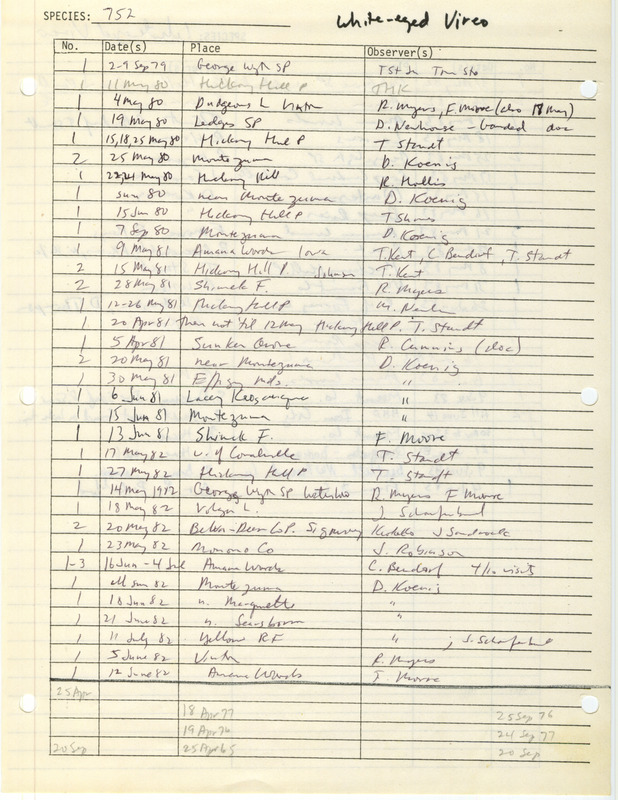 SPECIES: 752 White-eyed Vireo
No. Date(s) Place Observer(s)
1 2-9 Sep 79 George Wyth SP
1 11 May 80 Hickory Hill P THK
1 4 May 80 Dudgeons L Vinton R. Myers, F. Moore (also 18 May)
1 19 May 80 Ledges SP D. Newhouse - banded doc
1 15,18,25 May 80 Hickory Hill P T Staudt
2 25 May 80 Montezuma D. Koenig
1 May 80 Hickory Hill R. Hollis
1 Jun 80 near Montezuma D. Koenig
1 15 Jun 80 Hickory Hill P
1 7 Sep 80 Montezuma D. Koenig
1 9 May 81 Amana Woods Iowa T. Kent, C. Bendorf, T. Staudt
2 15 May 81 Hickory Hill P. Johnson T. Kent
2 28 May 81 Shimek F. R. Myers
1 12-26 May 81 Hickory Hill P
1 20 Apr 81 Then not 'til 12 May Hickory Hill P. T. Staudt
1 5 Apr 81 Sunken Grove R. Cummins (doc)
2 20 May 81 near Montezuma D. Koenig
1 30 May 81 Effigy Mds. "
1 6 Jun 81 Lacey Keosauqua "
1 15 Jun 81 Montezuma "
1 13 Jun 81 Shimek F. F. Moore
1 17 May 82 w. of Coralville T. Staudt
1 27 May 82 Hickory Hill P T. Staudt
1 14 May 1982 George Wyth SP Waterloo R. Myers F Moore
1 18 May 82 J
2 20 May 82 Belva-Deer Co P. Sigourney J Sandrock
1 23 May 82 Monona Co J. Robinson
1-3 16 Jun - 4 Jul Amana Woods C. Bendorf 4/10 visits
1 all Jun 82 Montezuma D. Koenig
1 18 Jun 82 n. Marquette "
1 21 June 82 n. Searsboro "
1 11 July 82 Yellow RF " ; J.
1 5 June 82 Vinton R. Myers
1 12 June 82 Amana Woods Moore
25 Apr
18 Apr 77 25 Sep 76
19 Apr 76 24 Sep 77
20 Sep 25 Apr 65 20 Sep